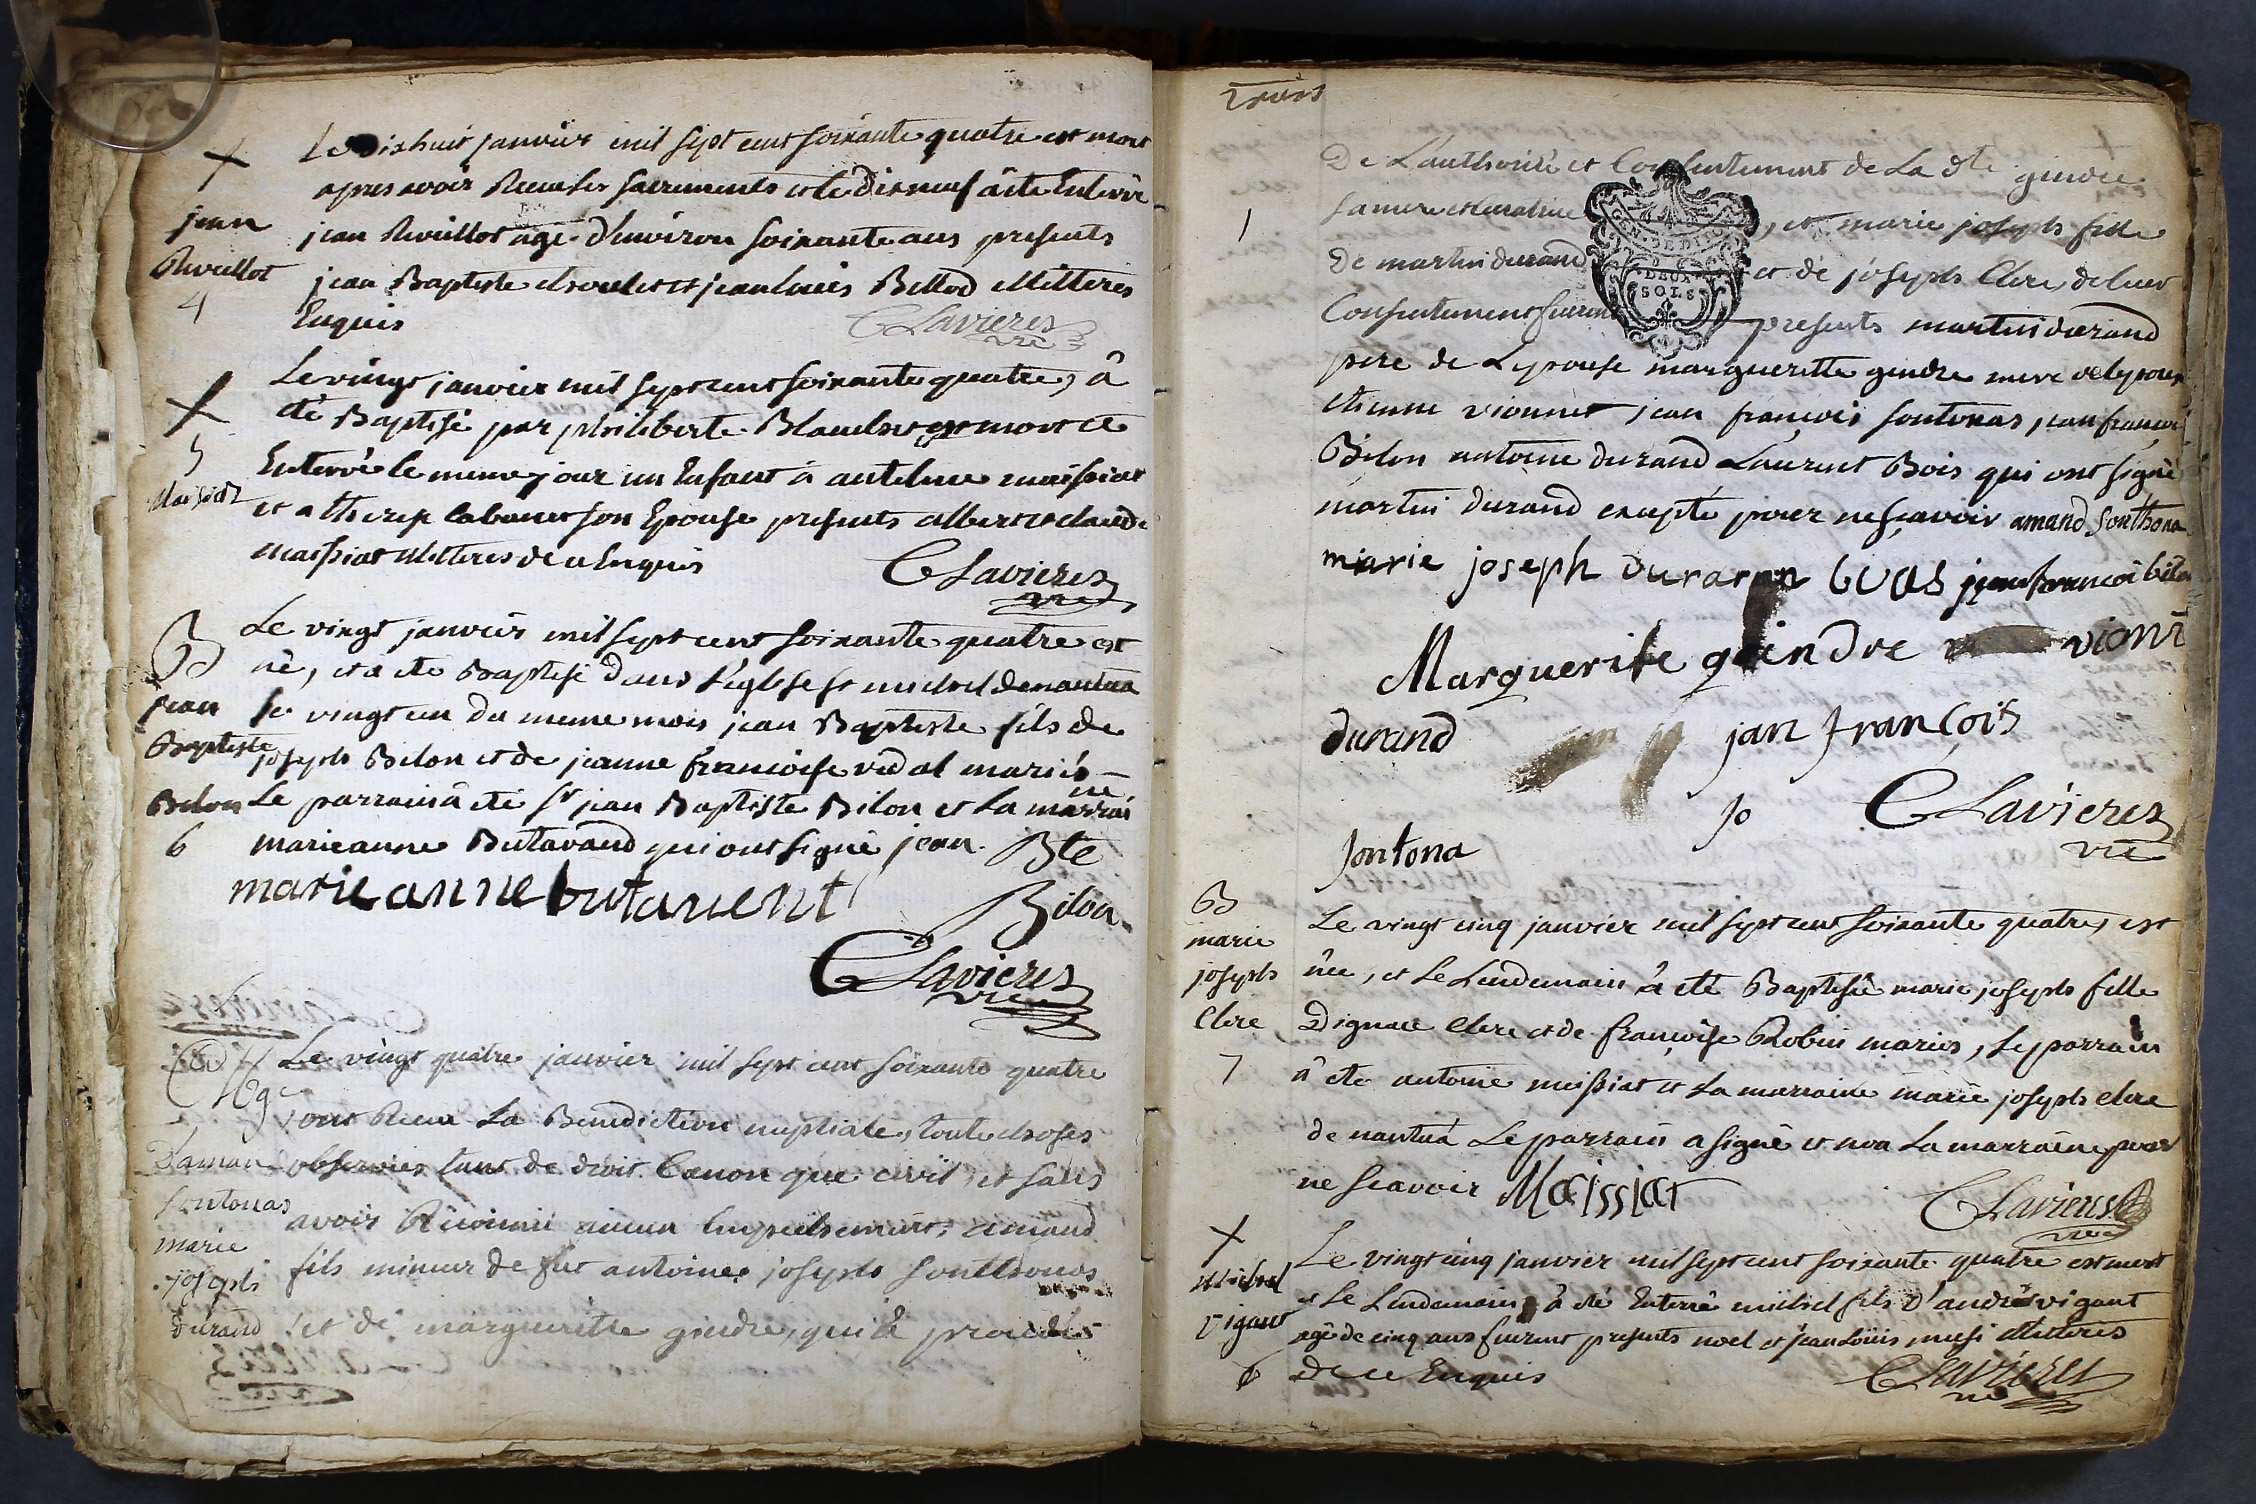 Le dixhuit janvier mil sept cent soixante quatre est mort
apres avoir Recu les sacrements et le dixneuf a ete Enterré
jean Reveillot agé d'Environ soixante ans presents
jean Baptiste et jean louis Billod illitteres
Enquis
CLavierez
vre
jean
Reveillot
4
Le vingt janvier mil sept cent soixante quatre, â
été Baptisé par philiberte Blanchet est mort et
Enterré le meme jour un Enfant à antelme maissiat
et a therese Cabanet son Epouse presents albert et claude
maissiat illiteres de ce Enquis
CLavierez
vre
5
Maissiat
Le vingt janvier mil sept cent soixante quatre est
né, et a ete Baptisé dans l'eglise st michel de nantua
le vingt un du meme mois jean Baptiste fils de
joseph Bilon et de jeanne francoise vidal mariés
Le parrain â eté sr jean Baptiste Bilon et La marraine
marieanne Butavand qui ont signé jean Bte
marie anne butavent
Bilon
CLavierez
vre
B
jean
Baptiste
Bilon
6
Le vingt quatre janvier mil sept cent soixante quatre
ont Recu La Benediction nuptiale, toute choses
observées tant de droit Canon que civil, et sans
avoir Reconnu aucun Empechement, amand
fils mineur de feu antoine joseph sonthonas
et de marguerite gindre, qui â procedé
Mge
D'aman
sontonas
marie
joseph
durand
trois
De L'authorité et Consentement de La dte gindre
sa mere et curatrice, et marie joseph fille
De martin durand et de joseph Clerc de leur
Consentement furent presents martin durand
pere de Lepouse margueritte gindre mere de lepoux
etienne vionnet jean françois sontonas, jean françois
Bilon antoine durand Laurent Bois qui ont signé
martin durand excepté pour ne sçavoir amand sonthona
marie joseph duraran buas jean francoi bilon
Marguerite geindre vionn
durand jan françois
jo CLavierez
vre
sontona
1
GEN. DE DIJON
DEUX
SOLS
B
marie
joseph
Clerc
7
Le vingt cinq janvier mil sept cent soixante quatre, est
née, et Le Lendemain â eté Baptisée marie joseph fille
D'ignace Clerc et de françoise Robin mariés, Le parrain
â ete antoine meissiat et La marraine marie joseph clerc
de nantua Le parrain a signé et non La marraine pour
ne scavoir Maissiat
CLavierez
vre
Michel
vigant
6
Le vingt cinq janvier mil sept cent soixante quatre est mort
et Le Lendemain â eté Enterré michel fils d'andré vigant
agé de cinq ans furent presents noel et jean Loüis musi illiteres
de ce Enquis
CLavierez
vre